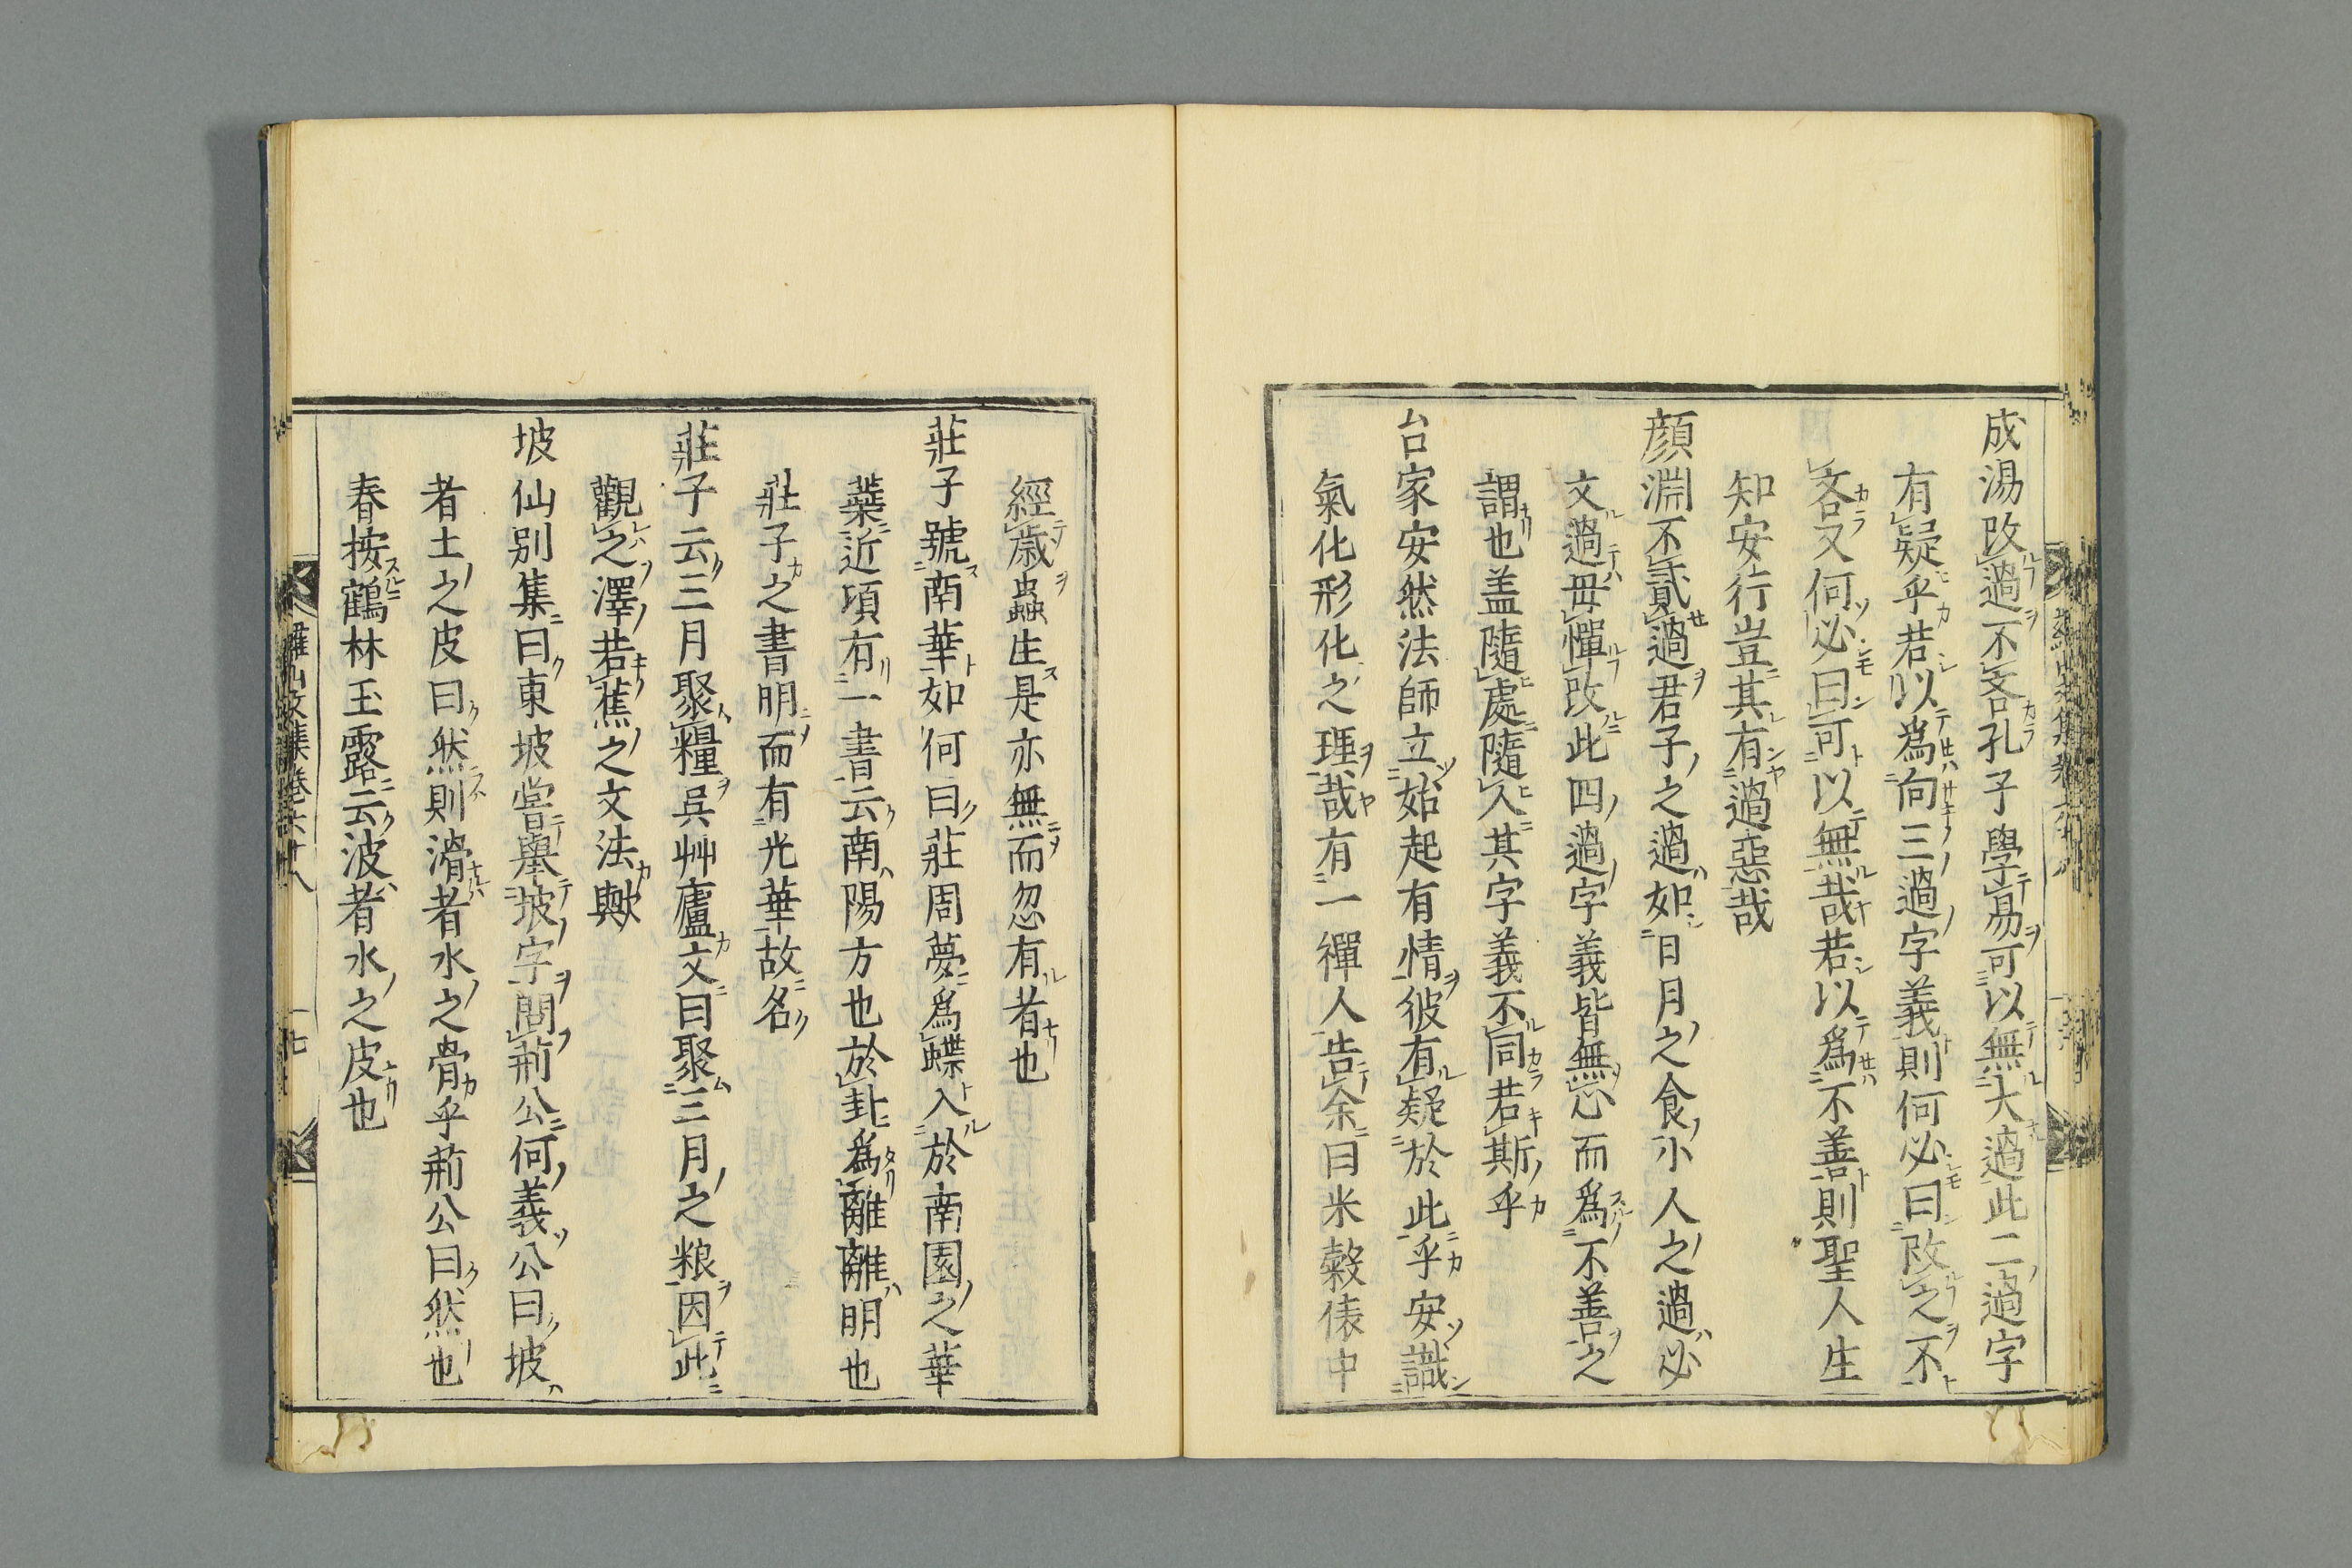 成湯改過不吝孔子學易可以無大過此二過字
有疑乎若以爲向三過字義則何必曰改之不
吝又何必曰可以無哉若以爲不善則聖人生
知安行豈其有過惡哉
顏淵不貳過君子之過如日月之食小人之過必
文過毋憚改此四過字義皆無心而爲不善之
謂也盖隨處隨人其字義不同若斯乎
台家安然法師立始起有情彼有疑於此乎安識
氣化形化之理哉有一禪人告余曰米穀俵中
經歳蟲生是亦無而忽有者也
莊子號南華如何曰莊周夢爲蝶入於南園之華
葉近項有一書云南陽方也於卦爲離離明也
莊子之書明而有光華故名
莊子云三月聚糧吳艸廬文曰聚三月之粮因此
觀之澤若蕉之文法歟
坡仙别集曰東坡嘗舉坡字問荊公何義公曰坡
者土之皮曰然則滑者水之骨乎荊公曰然也
春按鶴林玉露云波者水之皮也
羅山文集卷六十八
十七